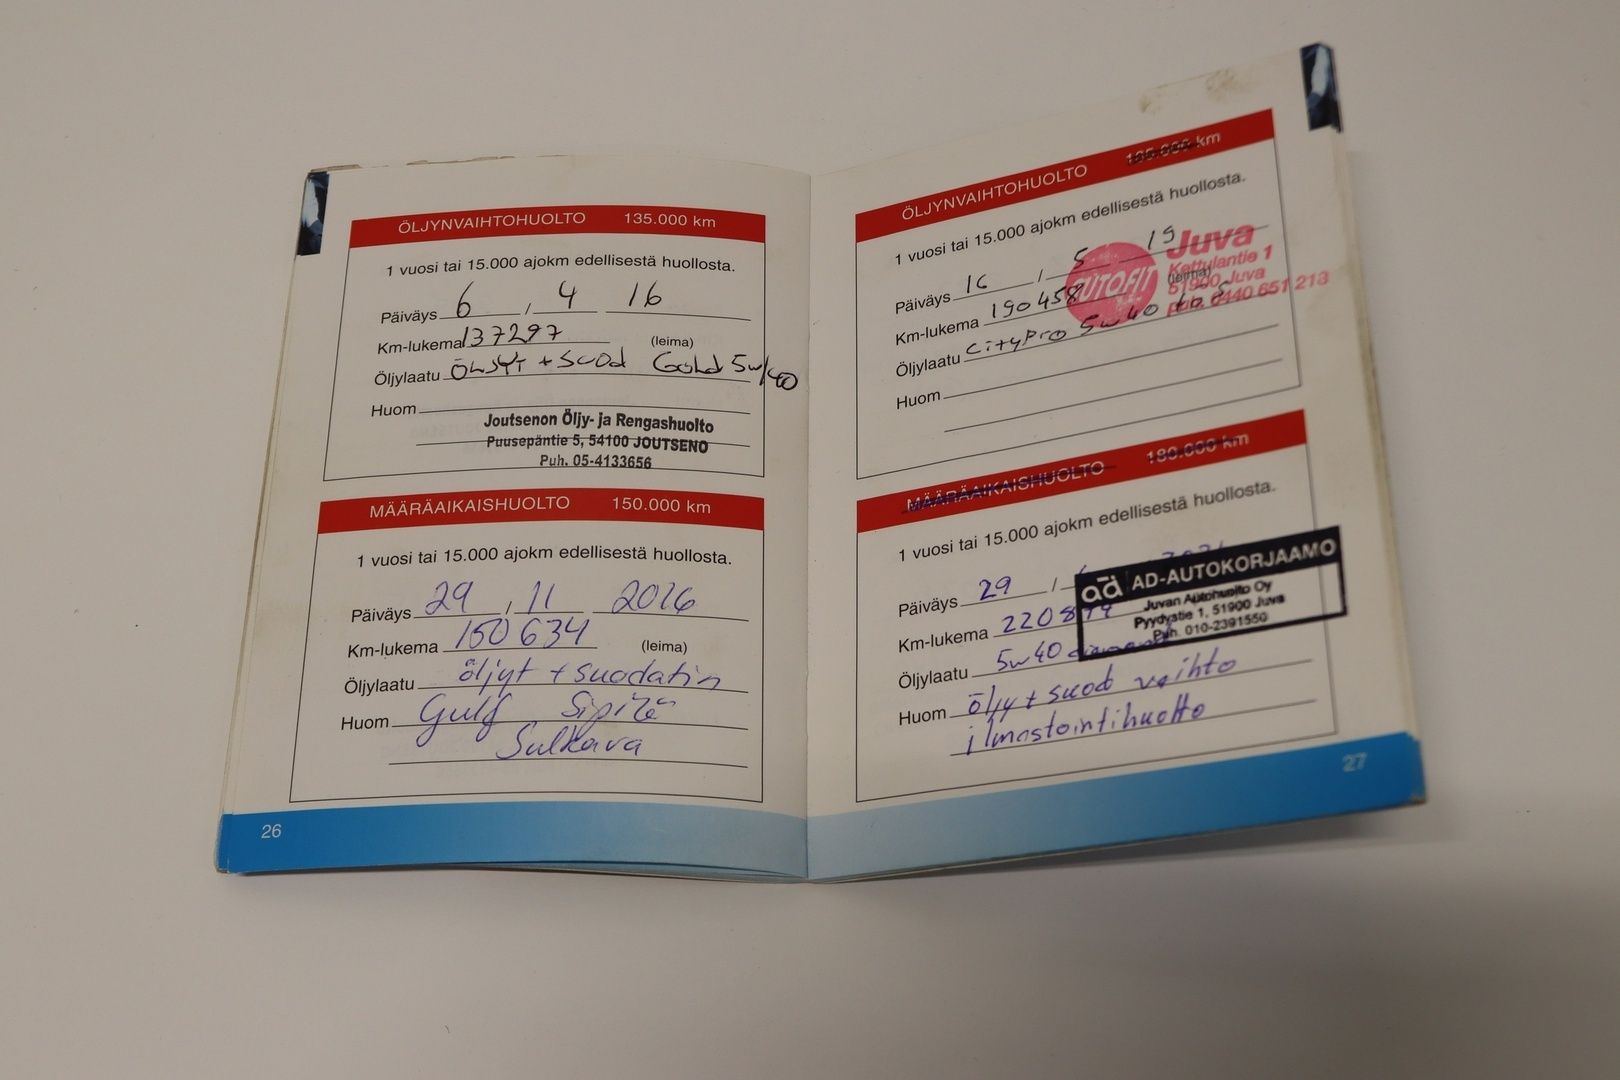 ÖLJYNVAIHTOHUOLTO 135.000 km
1 vuosi tai 15.000 ajokm edellisestä huollosta.
Päiväys 6 / 4 16
Km-lukema 137297 (leima)
Öljylaatu ÖLJYT + SUOD Gold 5w/40
Huom
Joutsenon Öljy- ja Rengashuolto
Puusepäntie 5, 54100 JOUTSENO
Puh. 05-4133656
MÄÄRÄAIKAISHUOLTO 150.000 km
1 vuosi tai 15.000 ajokm edellisestä huollosta.
Päiväys 29 / 11 2016
Km-lukema 150634 (leima)
Öljylaatu öljyt + suodatin
Huom Gulf Sipilä
Sulkava
26
ÖLJYNVAIHTOHUOLTO km
1 vuosi tai 15.000 ajokm edellisestä huollosta.
Päiväys 16 / 5 19
Km-lukema 190458 (leima)
Öljylaatu CityPro 5w40
Huom
AUTOFIT
Juva
Kettulantie 1
51900 Juva
puh. 0440 651 213
MÄÄRÄAIKAISHUOLTO 180.000 km
1 vuosi tai 15.000 ajokm edellisestä huollosta.
Päiväys 29 /
Km-lukema
Öljylaatu 5w40
Huom öljy + suod vaihto
ilmastointihuolto
ad AD-AUTOKORJAAMO
Juvan Autohuolto Oy
Pyydystie 1, 51900 Juva
Puh. 010-2391550
27